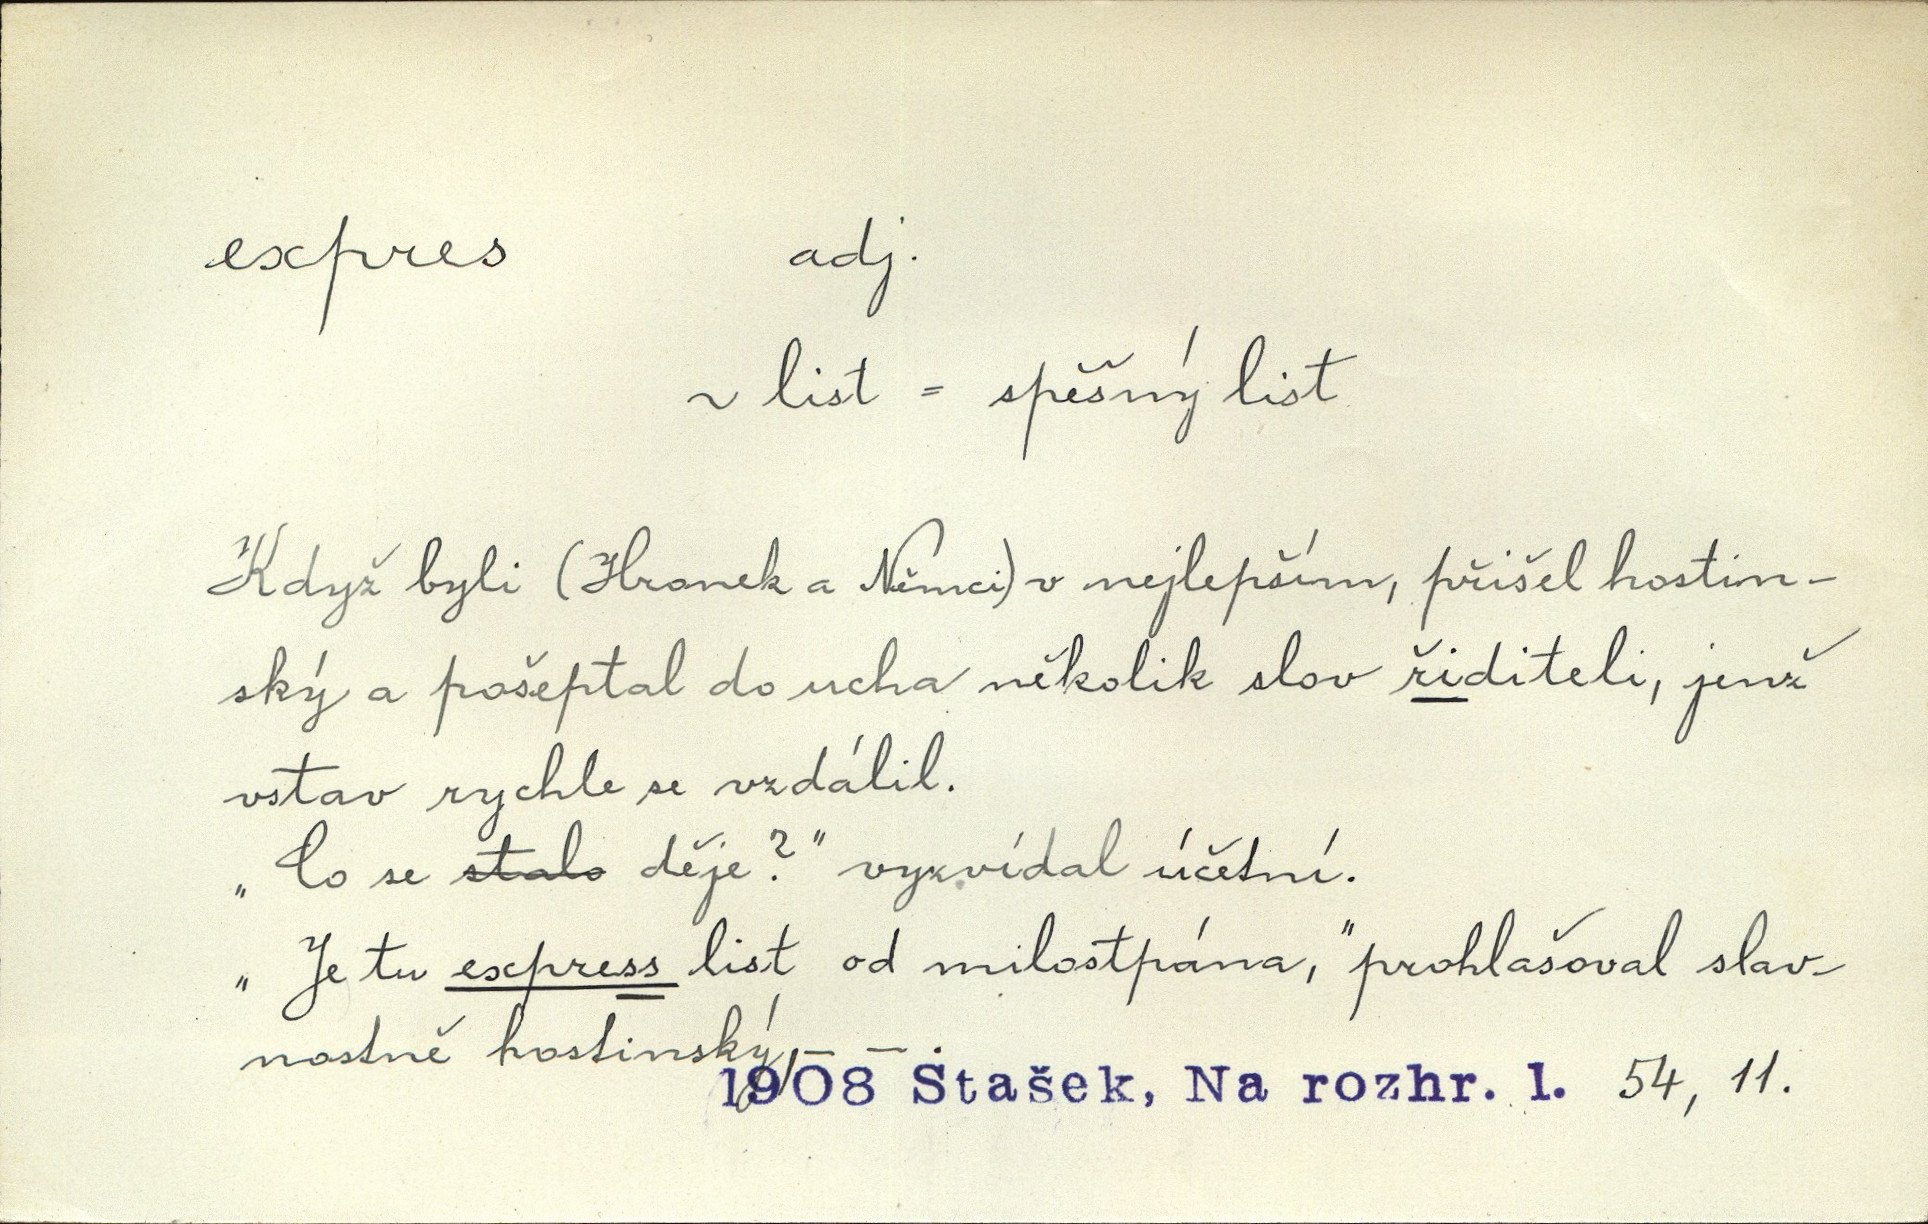 expres adj.
~ list = spěšný list
Když byli (Hronek a Němci) v nejlepším, přišel hostin-
ský a pošeptal do ucha několik slov řiditeli, jenž
vstav rychle se vzdálil.
„Co se stalo děje?" vyzvídal účetní.
„Je tu express list od milostpána," prohlašoval slav-
nostně hostinský, — — .
1908 Stašek, Na rozhr. 1. 54, 11.